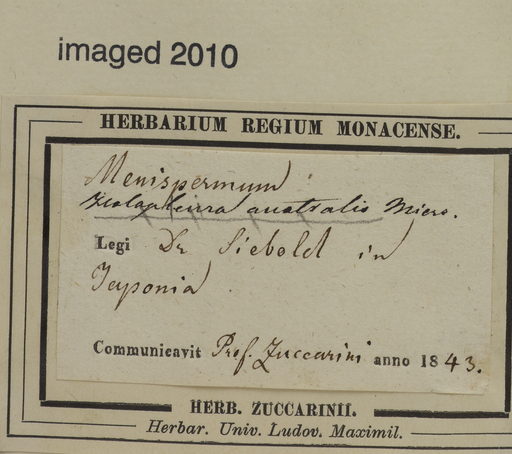 imaged 2010
HERBARIUM REGIUM MONACENSE.
Menispermum
australis Miers.
Legi Dr Siebold in
Japonia.
Communicavit Prof. Zuccarini anno 1843.
HERB. ZUCCARINII.
Herbar. Univ. Ludov. Maximil.